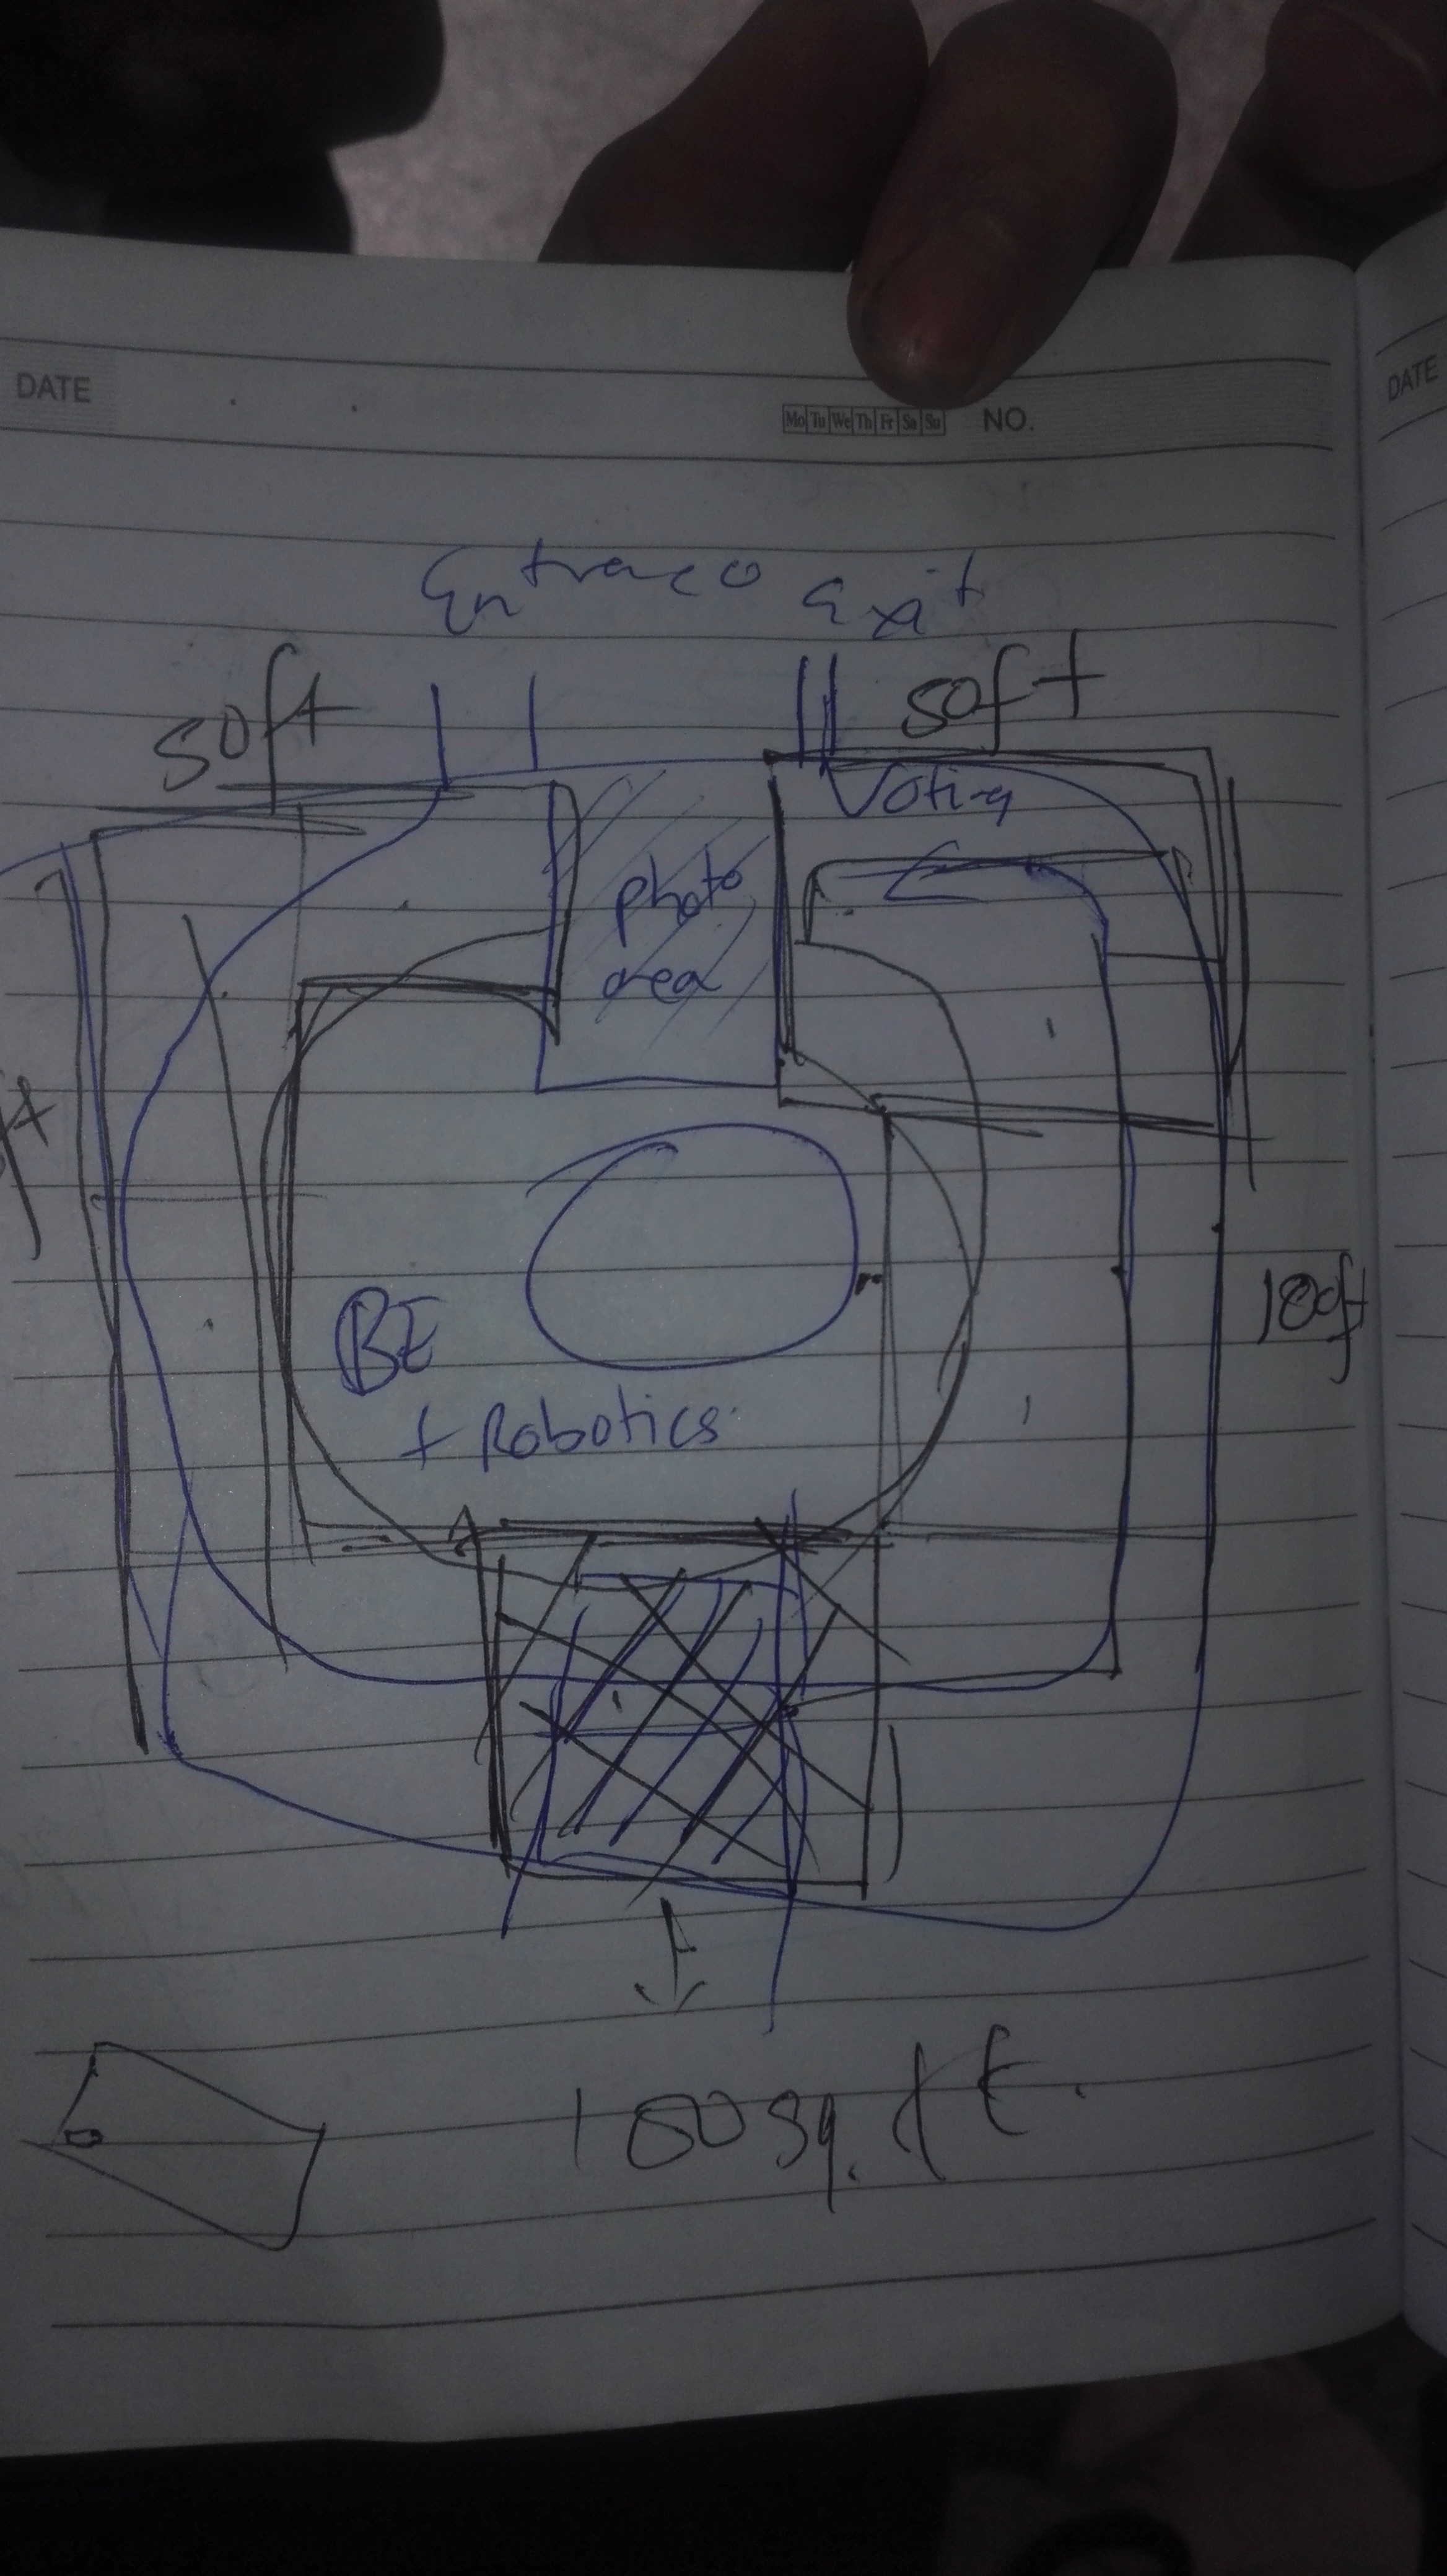 DATE
Mo Tu We Th Fr Sa Su NO.
DATE
Entrance Exit
50ft 50ft
Voting
photo
area
BE
+ Robotics
100ft
100 sq. ft.